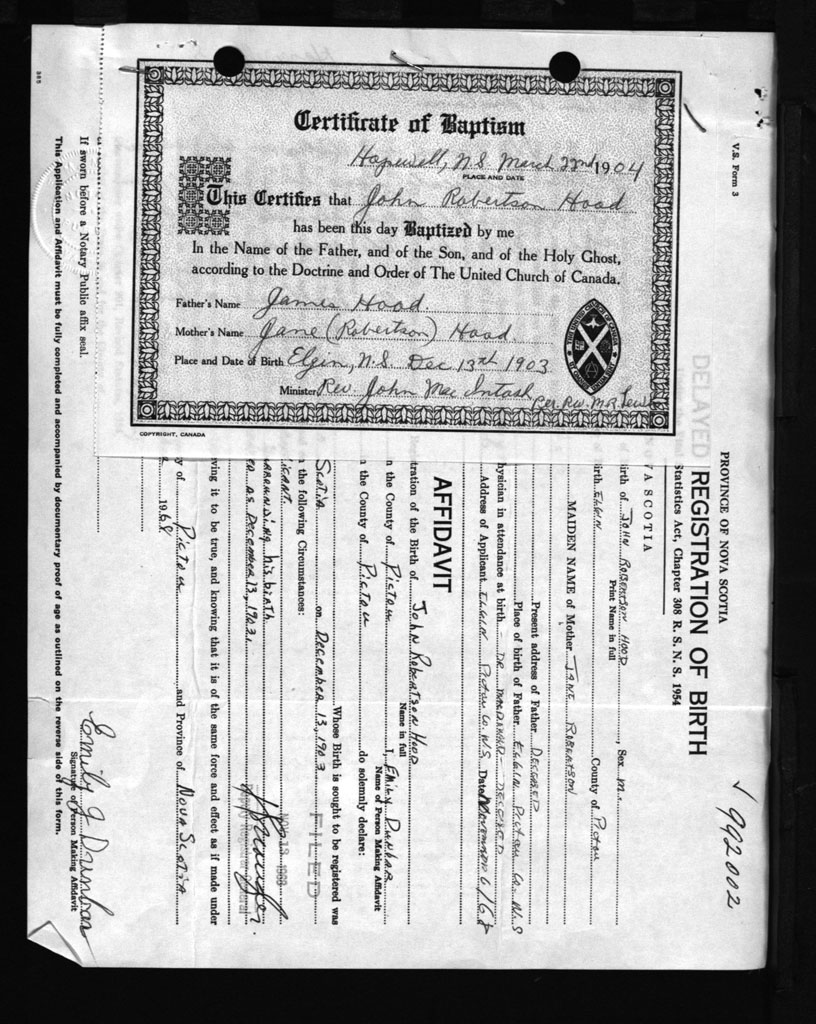 Certificate of Baptism
Hopewell, N.S. March 22nd 1904
PLACE AND DATE
This Certifies that John Robertson Hood
has been this day Baptized by me
In the Name of the Father, and of the Son, and of the Holy Ghost,
according to the Doctrine and Order of The United Church of Canada.
Father's Name James Hood
Mother's Name Jane (Robertson) Hood
Place and Date of Birth Elgin, N.S. Dec 13th 1903
Minister Rev. John MacIntosh
Per. Rev. M.R.
COPYRIGHT, CANADA
V.S. Form 3
992002
PROVINCE OF NOVA SCOTIA
DELAYED REGISTRATION OF BIRTH
Statistics Act, Chapter 308 R. S. N. S. 1954
SCOTIA
irth of JOHN ROBERTSON HOOD, Sex M.
Print Name in full
irth ELGIN County of Pictou
MAIDEN NAME of Mother JANE ROBERTSON
Present address of Father DECEASED
Place of birth of Father ELGIN PICTOU Co. N.S
hysician in attendance at birth - DR. MACDONALD - DECEASED
Address of Applicant ELGIN PICTOU Co. N.S. Date November 6/68
AFFIDAVIT
tration of the Birth of John Robertson Hood
Name in full
n the County of Pictou I, Emily Dunbar
Name of Person Making Affidavit
n the County of Pictou do solemnly declare:
Whose Birth is sought to be registered was
Scotia on December 13, 1903
FILED
n the following Circumstances:
NOV 13 1968
his birth
as December 13, 1903.
Deputy Registrar General
ving it to be true, and knowing that it is of the same force and effect as if made under
y of Pictou and Province of Nova Scotia
1968
Emily J Dunbar
Signature of Person Making Affidavit
If sworn before a Notary Public affix seal.
This Application and Affidavit must be fully completed and accompanied by documentary proof of age as outlined on the reverse side of this form.